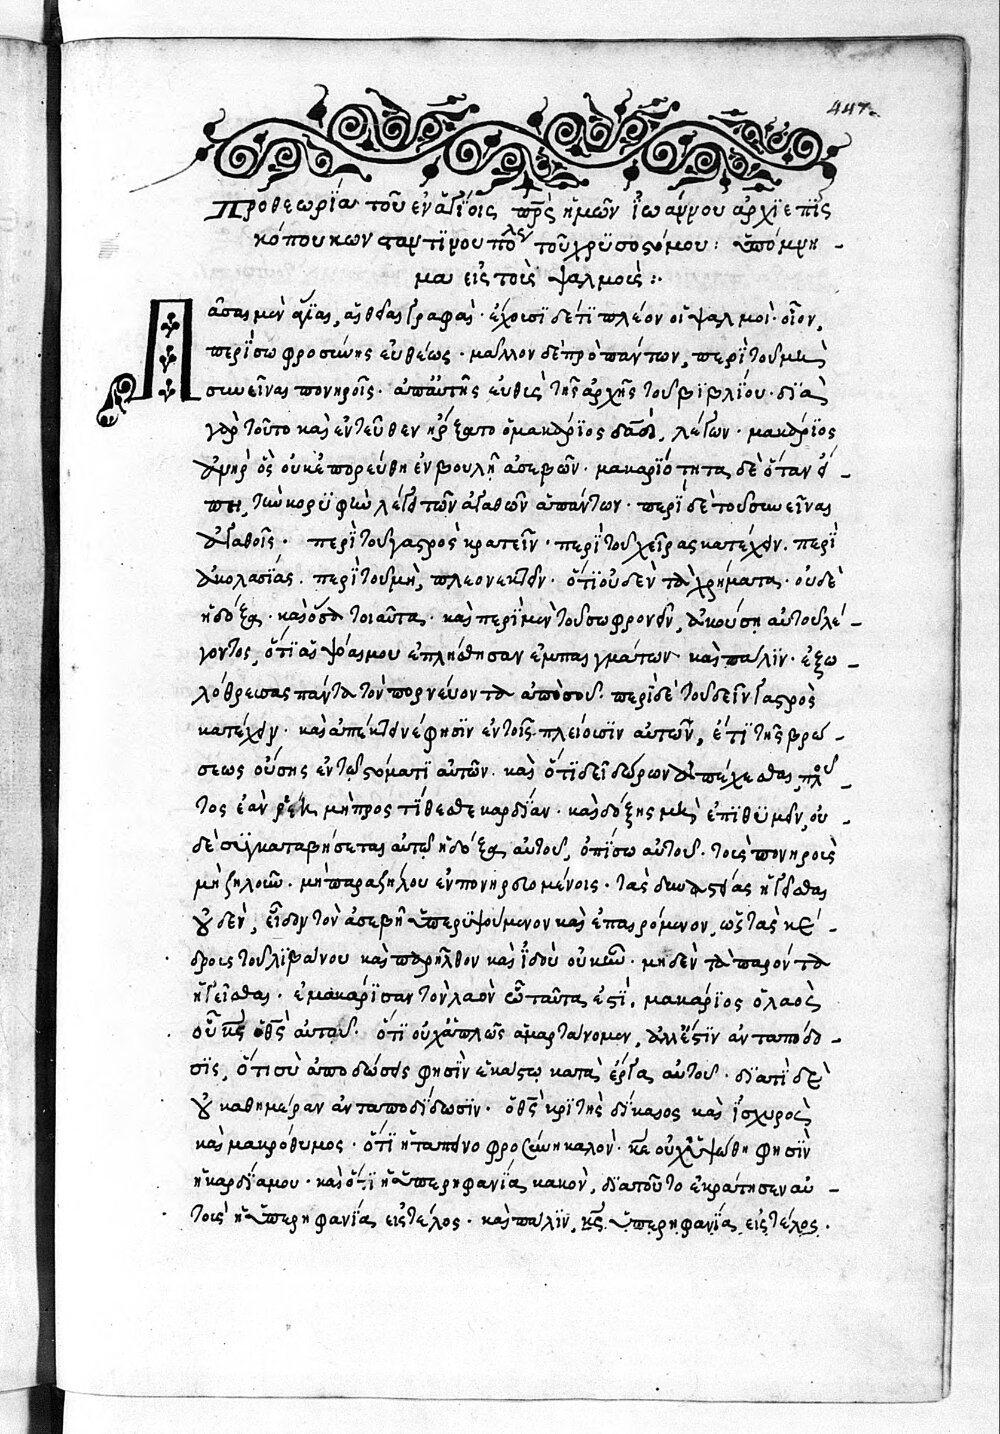 447.
Προθεωρΐα τοῦ ἐν ἁγΐοις πρς ἡμῶν Ἰωάννου ἀρχϊεπϊς
κόπου κωνσταντϊνουπόλεως τοῦ χρϋσοστόμου: ὑπόμνη -
μα εἰς τοὺς ψαλμούς :·
Πᾶσαι μὲν ἁγΐαι, αἱ θεῖαι γραφαὶ· ἔχουσϊ δέ τϊ πλέον οἱ ψαλμοὶ· οἷον,
περὶ σωφροσύνης εὐθέως· μᾶλλον δὲ πρὸ πάντων, περὶ τοῦ μὴ
συνεῖναι πονηροῖς· ἀπ' αὐτῆς εὐθὺς τῆς ἀρχῆς τοῦ βϊβλΐου· δϊὰ
γὰρ τοῦτο καὶ ἐντεῦθεν ἤρξατο ὁ μακάρϊος δαδ, λέγων· μακάρϊος
ἀνὴρ ὃς οὐκ ἐπορεύθη ἐν βουλῇ ἀσεβῶν· μακαρϊότητα δὲ ὅταν εἴ -
πῃ, τὴν κορϋφὴν λέγει τῶν ἀγαθῶν ἁπάντων· περὶ δὲ τοῦ συνεῖναι
ἀγαθοῖς· περὶ τοῦ γαστρὸς κρατεῖν· περὶ τοῦ χεῖρας κατέχειν. περὶ
ἀκολασΐας. περὶ τοῦ μὴ, πλεονεκτεῖν· ὅτϊ οὐδὲν τὰ χρήματα· οὐδὲ
ἡ δόξα· καὶ ὅσα τοιαῦτα· καὶ περὶ μὲν τοῦ σωφρονεῖν, ἀκούσῃ αὐτοῦ λέ -
γοντος, ὅτϊ αἱ ψόαι μου ἐπλήσθησαν ἐμπαιγμάτων· καὶ πάλϊν· ἐξω -
λόθρευσας πάντα τὸν πορνεύοντα ἀπὸ σοῦ· περὶ δὲ τοῦ δεῖν γαστρὸς
κατέχειν· καὶ ἀπέκτεινέ φησϊν ἐν τοῖς πλείοσϊν αὐτῶν, ἔτϊ τῆς βρώ -
σεως οὔσης ἐν τῷ στόματϊ αὐτῶν· καὶ ὅτϊ δεῖ δώρων ἀπέχεσθαι, πλοῦ -
τος ἐὰν ῥέῃ, μὴ προστΐθεσθε καρδΐαν· καὶ δόξης μὴ ἐπϊθϋμεῖν, οὐ -
δὲ σϋγκαταβήσεται αὐτῷ ἡ δόξα αὐτοῦ, ὀπΐσω αὐτοῦ· τοὺς πονηροὺς
μὴ ζηλοῦν· μὴ παραζήλου ἐν πονηρευομένοις· τὰς δυναστείας ἡγεῖσθαι
οὐδὲν, εἶδον τὸν ἀσεβῆ ὑπερϋψούμενον καὶ ἐπαιρόμενον, ὡς τὰς κέ -
δρους τοῦ λϊβάνου καὶ παρῆλθον καὶ ἰδοὺ οὐκ ἦν· μηδὲν τὰ παρόντα
ἡγεῖσθαι· ἐμακάρϊσαν τὸν λαὸν ᾧ ταῦτα ἐστὶ, μακάρϊος ὁ λαὸς
οὗ κς ὁ θς αὐτοῦ· ὅτϊ οὐχ ἁπλῶς ἁμαρτάνομεν, ἀλλ' ἔστϊν ἀνταπόδο -
σϊς, ὅτϊ σὺ ἀποδώσεις φησϊν ἑκάστῳ κατὰ τὰ ἔργα αὐτοῦ· δϊατὶ δὲ
οὐ καθημέραν ἀνταποδΐδωσϊν· ὁ θς κρϊτὴς δΐκαιος καὶ ἰσχυρὸς
καὶ μακρόθυμος· ὅτϊ ἡ ταπεινοφροσύνη καλόν· κε οὐχ ὑψώθη φησϊν
ἡ καρδΐα μου· καὶ ὅτϊ ἡ ὑπερηφανΐα κακὸν, δϊατοῦτο ἐκράτησεν αὐ -
τοὺς ἡ ὑπερηφανΐα εἰς τέλος· καὶ πάλϊν, κς ὑπερηφανΐα εἰς τέλος.